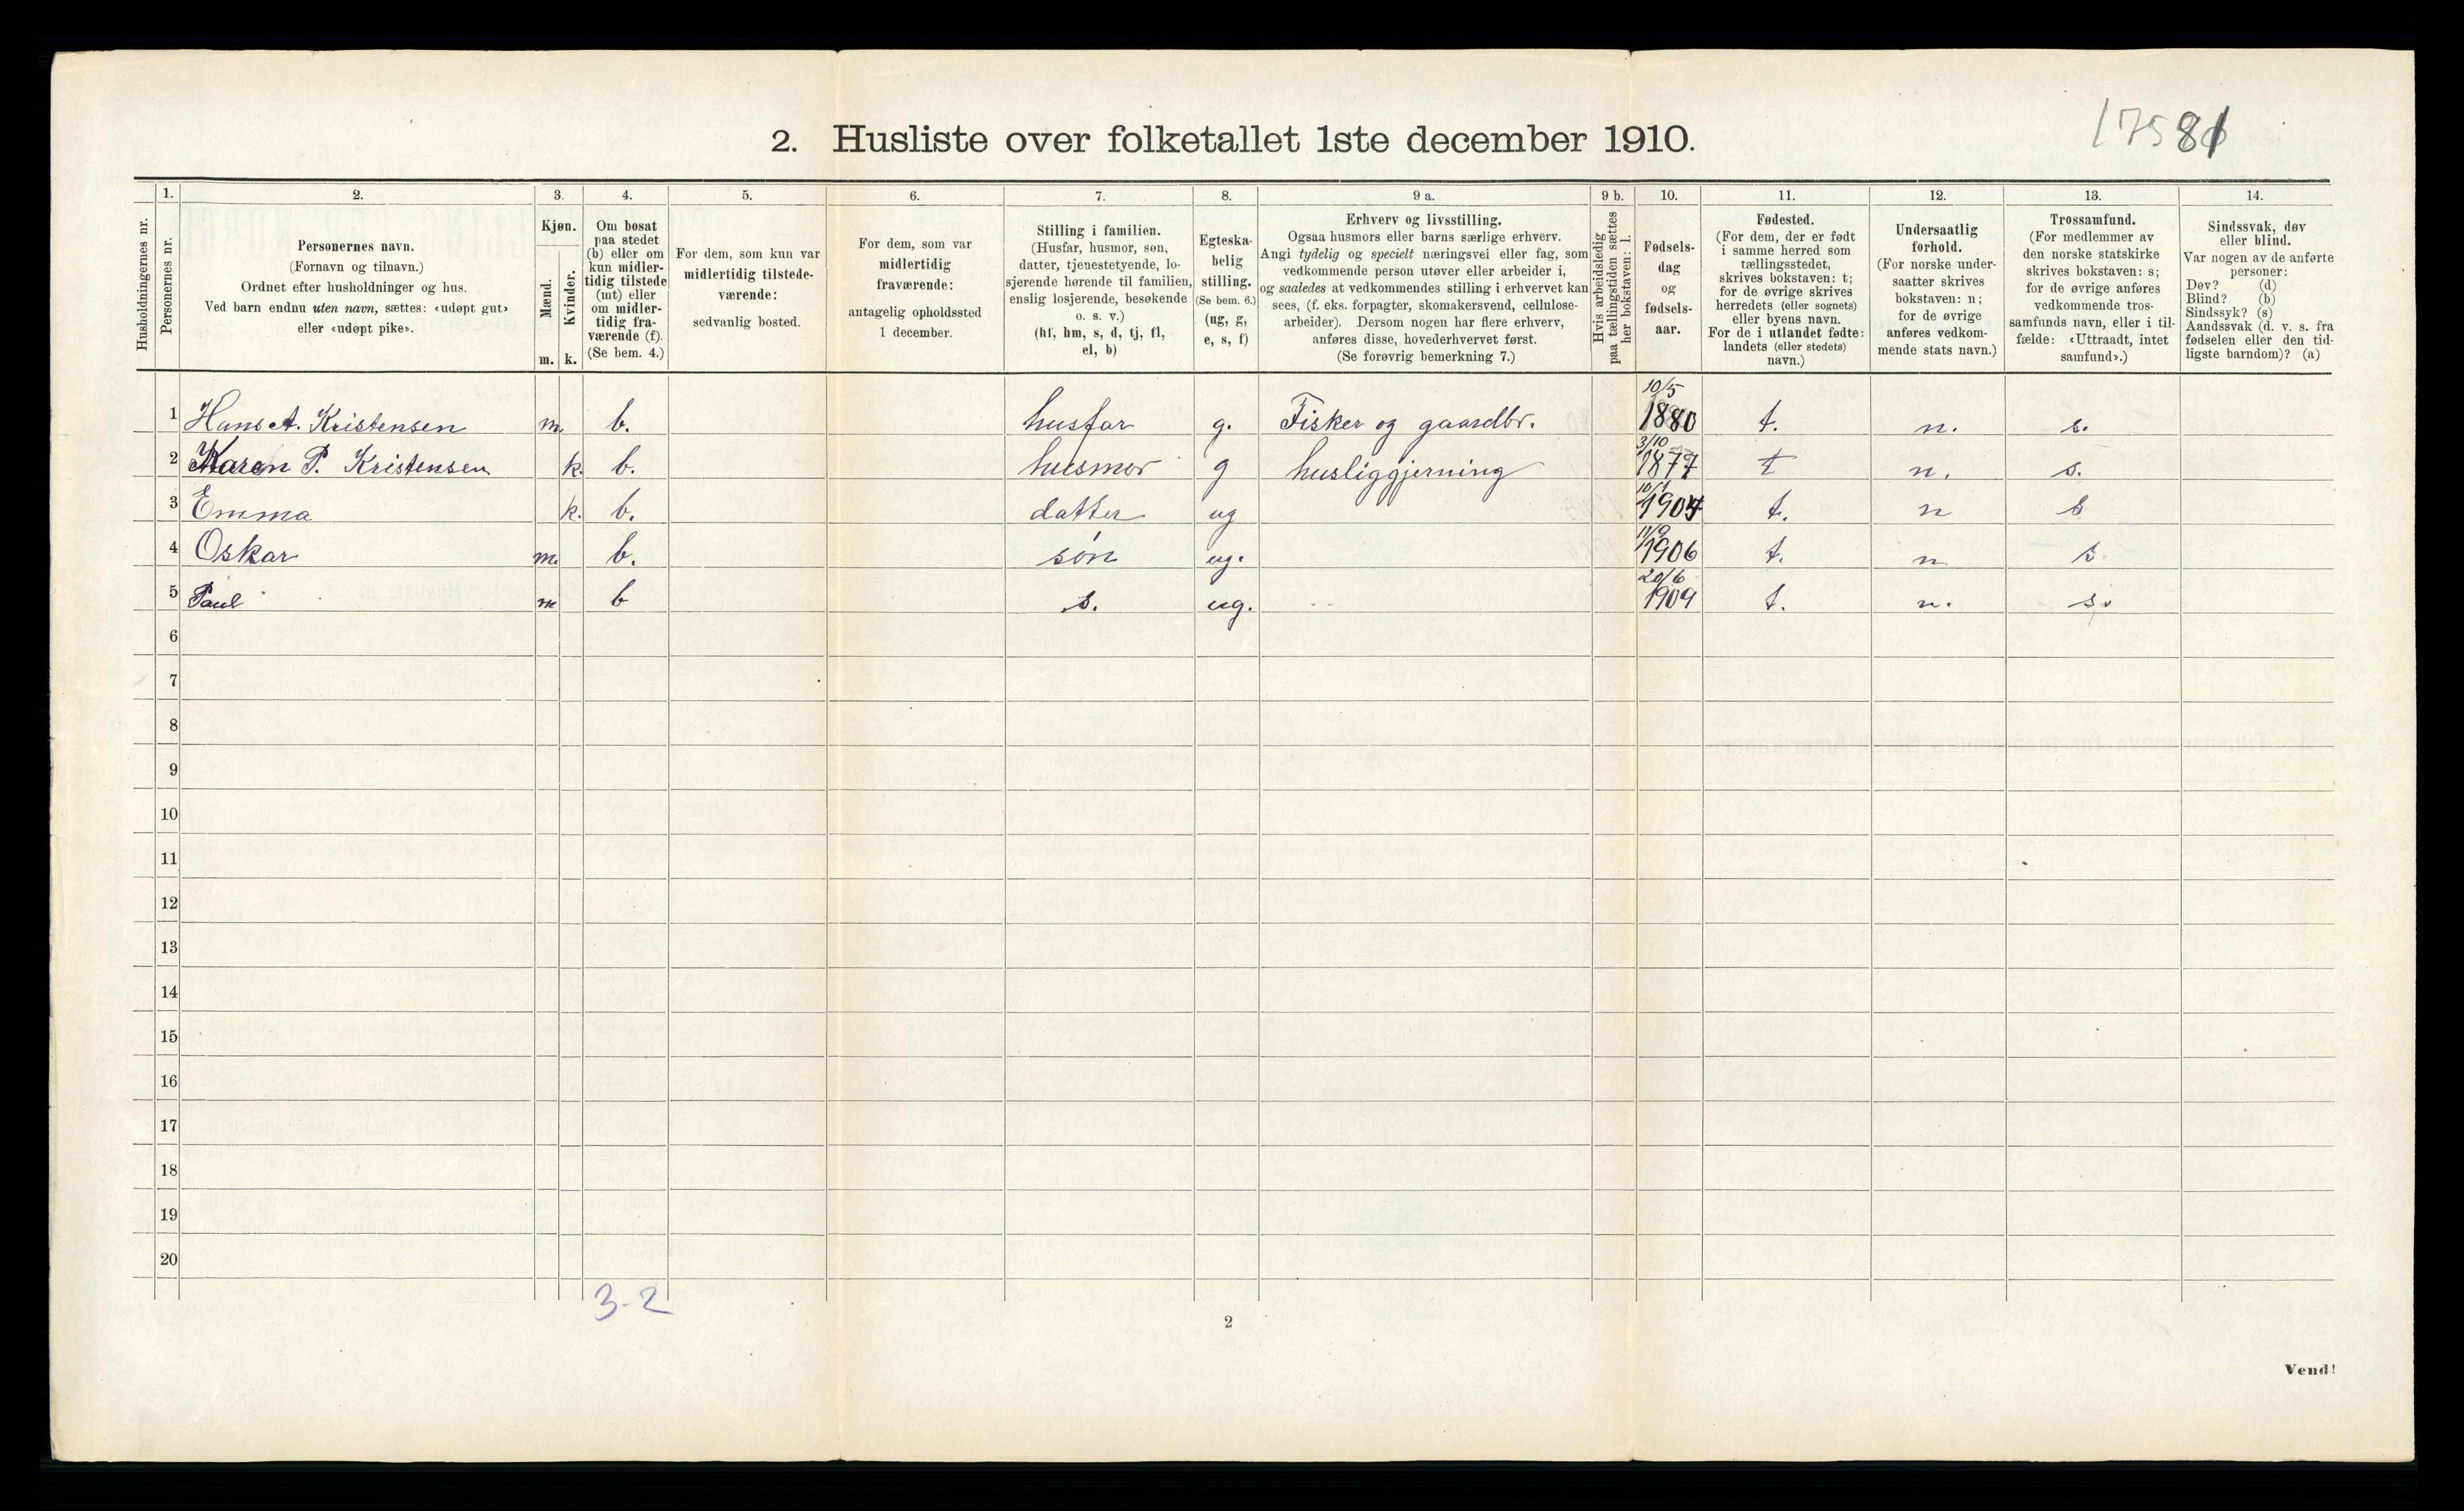 17581
2. Husliste over folketallet 1ste december 1910.
Husholdningernes nr.
1.
Personernes nr.
2.
Personernes navn.
(Fornavn og tilnavn.)
Ordnet efter husholdninger og hus.
Ved barn endnu uten navn, sættes: «udøpt gut»
eller «udøpt pike».
3.
Kjøn.
Mænd.
Kvinder.
m. k.
4.
Om bosat
paa stedet
(b) eller om
kun midler-
tidig tilstede
(mt) eller
om midler-
tidig fra-
værende (f).
(Se bem. 4.)
5.
For dem, som kun var
midlertidig tilstede-
værende:
sedvanlig bosted.
6.
For dem, som var
midlertidig
fraværende:
antagelig opholdssted
1 december.
7.
Stilling i familien.
(Husfar, husmor, søn,
datter, tjenestetyende, lo-
sjerende hørende til familien,
enslig losjerende, besøkende
o. s. v.)
(hf, hm, s, d, tj, fl,
el, b)
8.
Egteska-
belig
stilling.
(Se bem. 6.)
(ug, g,
e, s, f)
9 a.
Erhverv og livsstilling.
Ogsaa husmors eller barns særlige erhverv.
Angi tydelig og specielt næringsvei eller fag, som
vedkommende person utøver eller arbeider i,
og saaledes at vedkommendes stilling i erhvervet kan
sees, (f. eks. forpagter, skomakersvend, cellulose-
arbeider). Dersom nogen har flere erhverv,
anføres disse, hovederhvervet først.
(Se forøvrig bemerkning 7.)
9 b.
Hvis arbeidsledig
paa tællingstiden sættes
her bokstaven: l.
10.
Fødsels-
dag
og
fødsels-
aar.
11.
Fødested.
(For dem, der er født
i samme herred som
tællingsstedet,
skrives bokstaven: t;
for de øvrige skrives
herredets (eller sognets)
eller byens navn.
For de i utlandet fødte:
landets (eller stedets)
navn.)
12.
Undersaatlig
forhold.
(For norske under-
saatter skrives
bokstaven: n;
for de øvrige
anføres vedkom-
mende stats navn.)
13.
Trossamfund.
(For medlemmer av
den norske statskirke
skrives bokstaven: s;
for de øvrige anføres
vedkommende tros-
samfunds navn, eller i til-
fælde: «Uttraadt, intet
samfund».)
14.
Sindssvak, døv
eller blind.
Var nogen av de anførte
personer:
Døv? (d)
Blind? (b)
Sindssyk? (s)
Aandssvak (d. v. s. fra
fødselen eller den tid-
ligste barndom)? (a)
10/5
1 Hans A. Kristensen m. b. husfar g. Fisker og gaardbr. 1880 t. n. s.
3/10
2 Karen P. Kristensen k. b. husmor g husliggjerning 1877 t n. s.
10/1
3 Emma k. b. datter ug 1904 t. n s
4 Oskar m. b. søn ug. 1906 t. n s.
20/6
5 Paul m b s. ug. 1909 t. n. s.
6
7
8
9
10
11
12
13
14
15
16
17
18
19
20
3-2
2
Vend!